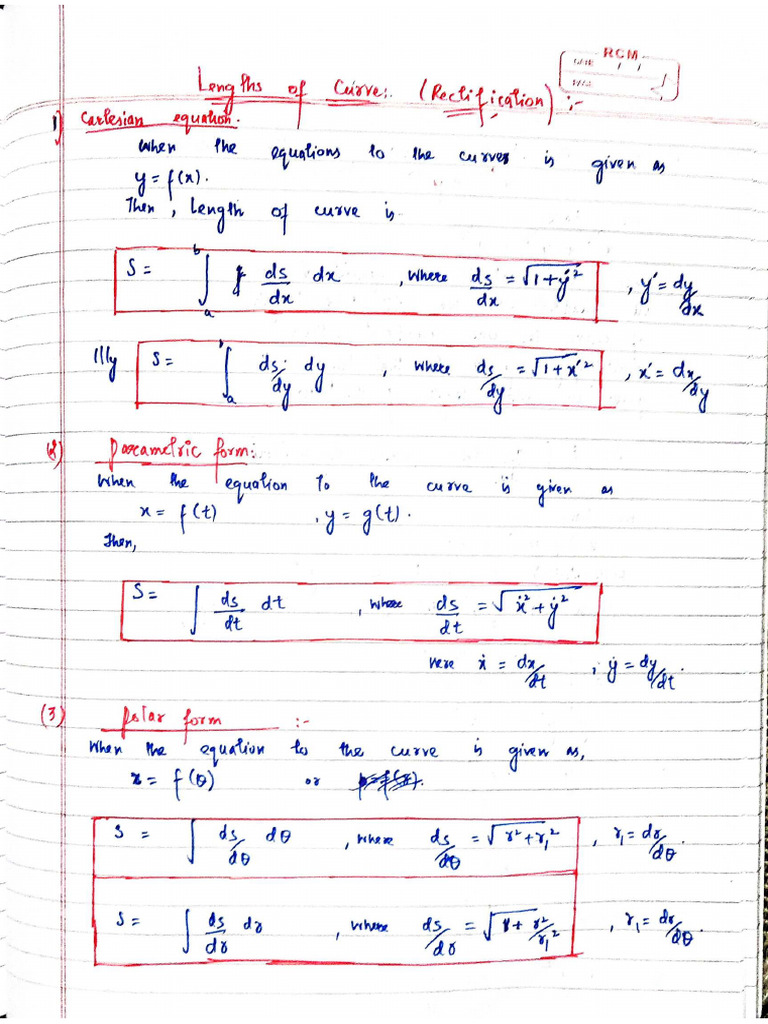 RCM
DATE / /
PAGE
Lengths of Curve: (Rectification) :-
1) Cartesian equation.
When the equations to the curves is given as
y = f(x).
Then, Length of curve is
S = ∫_a^b ds/dx dx , where ds/dx = √(1+y'²) , y' = dy/dx
Illly S = ∫_a^b ds/dy dy , where ds/dy = √(1+x'²) , x' = dx/dy
(2) Parametric form:
When the equation to the curve is given as
x = f(t) , y = g(t).
Then,
S = ∫ ds/dt dt , where ds/dt = √(ẋ²+ẏ²)
Here ẋ = dx/dt , ẏ = dy/dt.
(3) Polar form :-
When the equation to the curve is given as,
r = f(θ) or
S = ∫ ds/dθ dθ , where ds/dθ = √(r²+r₁²) , r₁ = dr/dθ.
S = ∫ ds/dr dr , where ds/dr = √(1+r²/r₁²) , r₁ = dr/dθ.